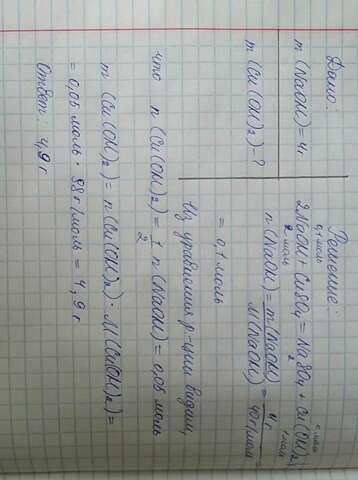 Дано:
m(NaOH)=4г
m(Cu(OH)2)-?
Решение:
0,1 моль
2NaOH+CuSO4=Na2SO4+Cu(OH)2↓
2 моль 1 моль
n(NaOH)=m(NaOH)/M(NaOH)=4г/40г/моль
=0,1 моль
Из уравнения р-ции видим,
что n(Cu(OH)2)=1/2 n(NaOH)=0,05 моль
m(Cu(OH)2)=n(Cu(OH)2)·M(Cu(OH)2)=
=0,05 моль·98г/моль=4,9г
Ответ: 4,9г